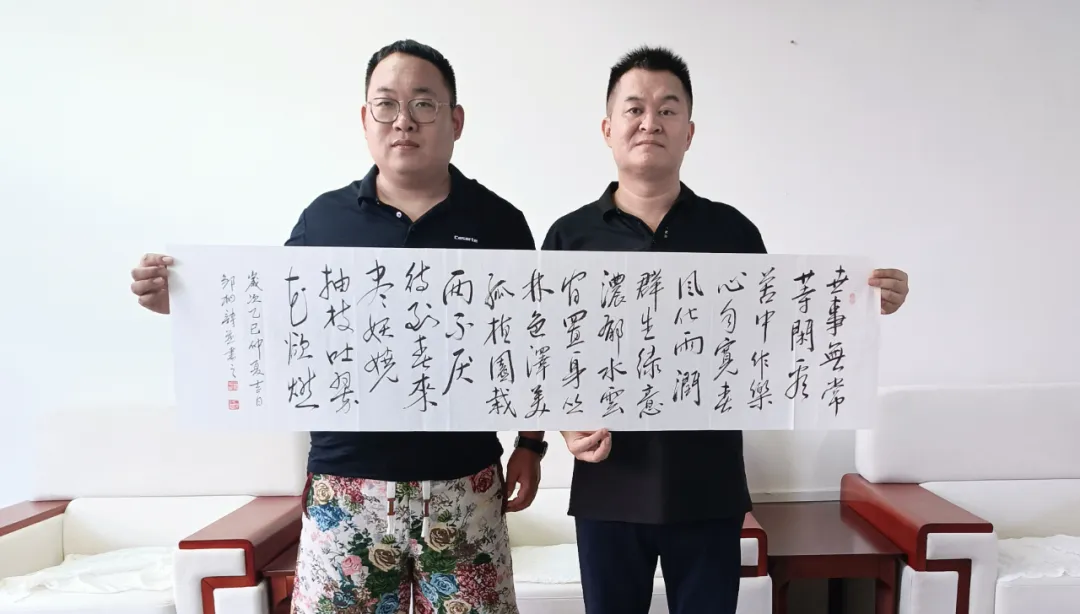 世事無常
等閑看
苦中作樂
心自寬春
風化雨潤
群生绿意
濃郁水雲
間置身丛
林色澤美
孤植園栽
两不厌
待到春來
尽妖娆
抽枝吐翠
花欲燃
歲次乙巳仲夏吉日
邹诗并書之